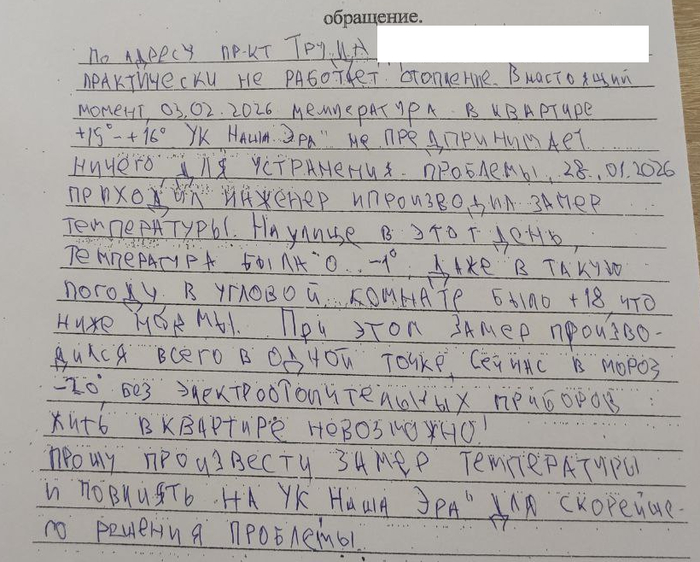 обращение.
По адресу пр-кт Труда
практически не работает отопление. В настоящий
момент, 03.02.2026 температура в квартире
+15°-+16° УК Наша Эра" не предпринимает
ничего для устранения проблемы, 28.01.2026
приходил инженер и производил замер
температуры. На улице в этот день,
температура была 0..-1°, даже в такую
погоду в угловой комнате было +18, что
ниже нормы. При этом замер произво-
дился всего в одной точке, Сейчас в мороз
-20°, без электроотопительных приборов
жить в квартире невозможно!
Прошу произвести замер температуры
и повлиять на УК Наша Эра" для скорейше-
го решения проблемы.